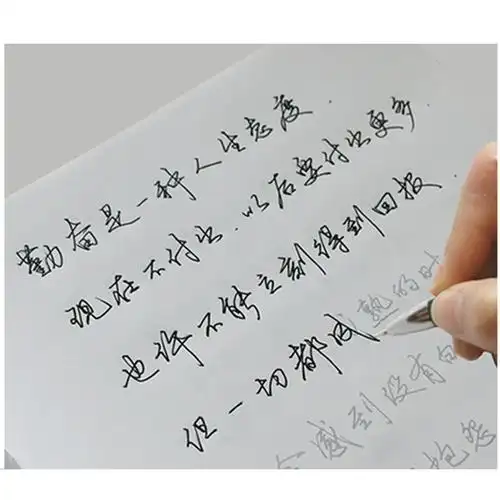 勤奋是一种人生态度.
现在不付出.以后要付出更多.
也许不能立刻得到回报
但一切都成熟的时
会感到没有白
抱怨